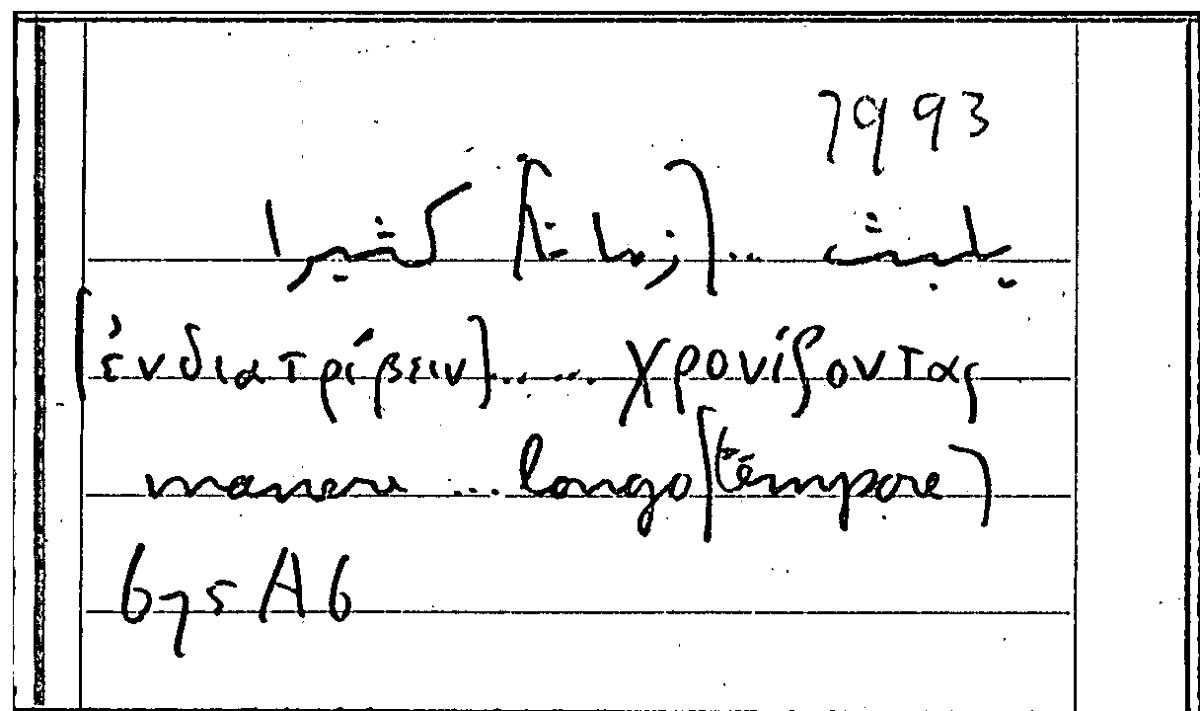 7993
يلبث ... [زمانا] كثيرا
[ἐνδιατρίβειν]...... χρονίζοντας
manere ... longo (tempore)
675 A6